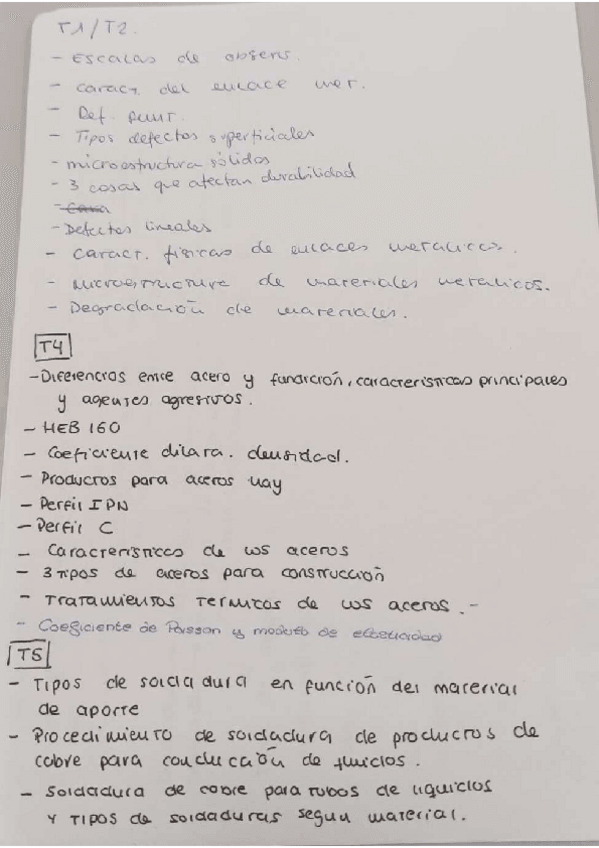 T1/T2.
- Escalas de observ.
- caract. del enlace met.
- Def. punt.
- Tipos defectos superficiales
- microestructura sólidos
- 3 cosas que afectan durabilidad
- Defectos lineales
- caract. físicas de enlaces metalicos.
- Microestructura de materiales metalicos.
- Degradación de materiales.
T4
- Diferencias entre acero y fundición, características principales
y agentes agresivos.
- HEB 160
- Coeficiente dilata. densidad.
- Productos para aceros hay
- Perfil IPN
- Perfil C
- Características de los aceros
- 3 tipos de aceros para construcción
- Tratamientos termicos de los aceros.-
- Coeficiente de Poisson y modulo de elasticidad
T5
- Tipos de soldadura en función del material
de aporte
- Procedimiento de soldadura de productos de
cobre para conducción de fluidos.
- Soldadura de cobre para tubos de liquidos
y tipos de soldaduras segun material.